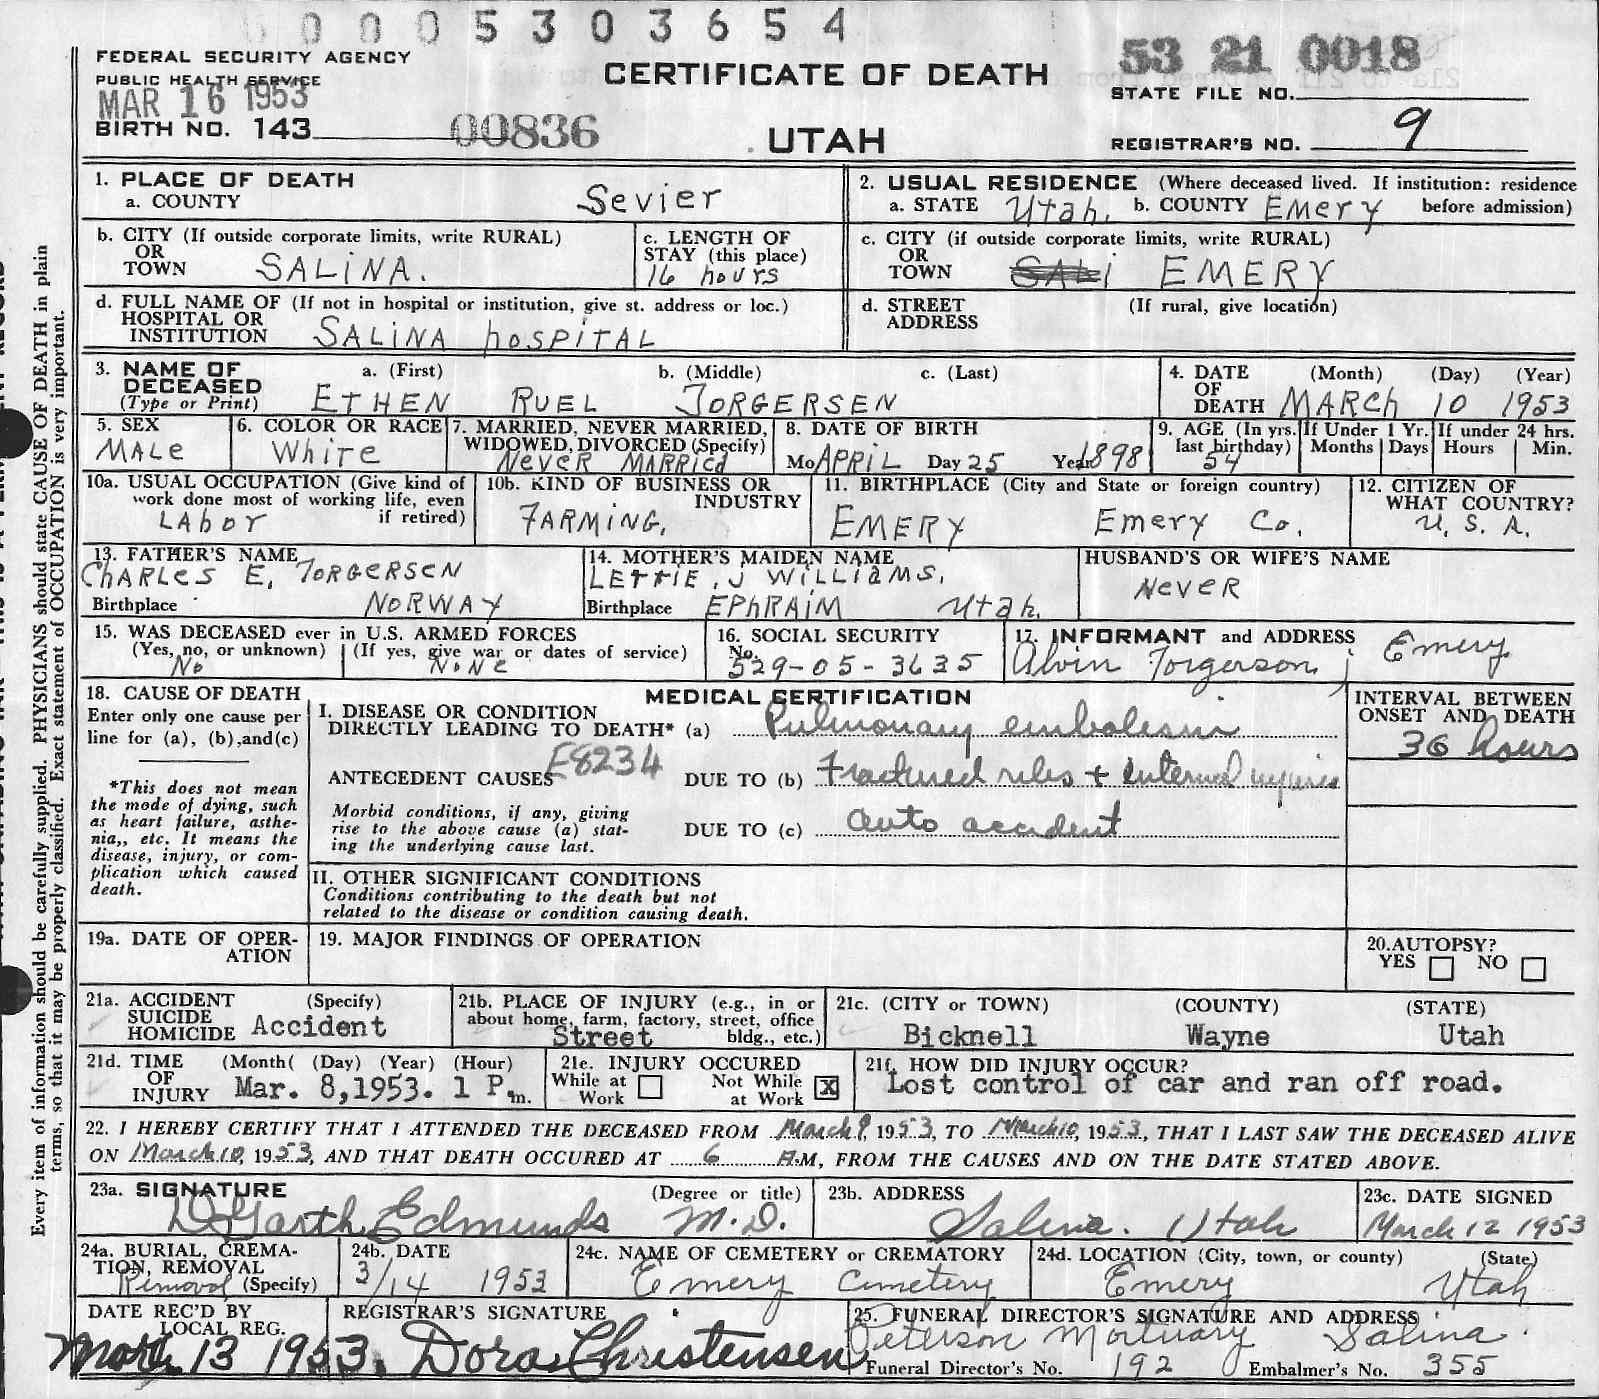 0005303654
FEDERAL SECURITY AGENCY
PUBLIC HEALTH SERVICE
MAR 16 1953
BIRTH NO. 143
00836
CERTIFICATE OF DEATH
UTAH
53 21 0018
STATE FILE NO.
REGISTRAR'S NO. 9
1. PLACE OF DEATH
a. COUNTY Sevier
2. USUAL RESIDENCE (Where deceased lived. If institution: residence
a. STATE Utah. b. COUNTY EMERY before admission)
b. CITY (If outside corporate limits, write RURAL)
OR
TOWN SALINA.
c. LENGTH OF
STAY (this place)
16 hours
c. CITY (if outside corporate limits, write RURAL)
OR
TOWN SALi EMERY
d. FULL NAME OF (If not in hospital or institution, give st. address or loc.)
HOSPITAL OR
INSTITUTION SALINA hOSPITAL
d. STREET (If rural, give location)
ADDRESS
3. NAME OF a. (First) b. (Middle) c. (Last)
DECEASED
(Type or Print) ETHEN RUEL JORGERSEN
4. DATE (Month) (Day) (Year)
OF
DEATH MARCh 10 1953
5. SEX
MALe
6. COLOR OR RACE
White
7. MARRIED, NEVER MARRIED,
WIDOWED, DIVORCED (Specify)
NeveR MARRIed
8. DATE OF BIRTH
Mo APRIL Day 25 Year 1898
9. AGE (In yrs. last birthday) 54
If Under 1 Yr. Months Days
If under 24 hrs. Hours Min.
10a. USUAL OCCUPATION (Give kind of
work done most of working life, even
if retired)
LAbor
10b. KIND OF BUSINESS OR
INDUSTRY
FARMING,
11. BIRTHPLACE (City and State or foreign country)
EMERY Emery Co.
12. CITIZEN OF
WHAT COUNTRY?
U. S. A.
13. FATHER'S NAME
ChARLES E. TORGERSEN
Birthplace NORWAY
14. MOTHER'S MAIDEN NAME
LETTIE. J WILLIAMS.
Birthplace EPHRAIM Utah.
HUSBAND'S OR WIFE'S NAME
NeveR
15. WAS DECEASED ever in U.S. ARMED FORCES
(Yes, no, or unknown) (If yes, give war or dates of service)
No NoNe
16. SOCIAL SECURITY
No.
529-05-3635
17. INFORMANT and ADDRESS
Alvin Torgerson, Emery
18. CAUSE OF DEATH
Enter only one cause per
line for (a), (b),and(c)
*This does not mean
the mode of dying, such
as heart failure, asthe-
nia,, etc. It means the
disease, injury, or com-
plication which caused
death.
MEDICAL CERTIFICATION
I. DISEASE OR CONDITION
DIRECTLY LEADING TO DEATH* (a) Pulmonary embolesim
ANTECEDENT CAUSES E8234 DUE TO (b) Fractured ribs + internal injuries
Morbid conditions, if any, giving
rise to the above cause (a) stat-
ing the underlying cause last.
DUE TO (c) auto accident
INTERVAL BETWEEN
ONSET AND DEATH
36 hours
II. OTHER SIGNIFICANT CONDITIONS
Conditions contributing to the death but not
related to the disease or condition causing death.
19a. DATE OF OPER-
ATION
19. MAJOR FINDINGS OF OPERATION
20.AUTOPSY?
YES NO
21a. ACCIDENT (Specify)
SUICIDE
HOMICIDE Accident
21b. PLACE OF INJURY (e.g., in or
about home, farm, factory, street, office
bldg., etc.)
Street
21c. (CITY or TOWN) (COUNTY) (STATE)
Bicknell Wayne Utah
21d. TIME (Month( (Day) (Year) (Hour)
OF
INJURY Mar. 8,1953. 1 P.m.
21e. INJURY OCCURED
While at Work Not While at Work X
21f. HOW DID INJURY OCCUR?
Lost control of car and ran off road.
22. I HEREBY CERTIFY THAT I ATTENDED THE DECEASED FROM March 9, 1953, TO March 10, 1953, THAT I LAST SAW THE DECEASED ALIVE
ON March 10, 1953, AND THAT DEATH OCCURED AT 6 A.M, FROM THE CAUSES AND ON THE DATE STATED ABOVE.
23a. SIGNATURE (Degree or title)
D Garth Edmunds M.D.
23b. ADDRESS
Salina. Utah
23c. DATE SIGNED
March 12 1953
24a. BURIAL, CREMA-
TION, REMOVAL
Removal (Specify)
24b. DATE
3/14 1953
24c. NAME OF CEMETERY or CREMATORY
Emery Cemetery
24d. LOCATION (City, town, or county) (State)
Emery Utah
DATE REC'D BY
LOCAL REG.
Mar. 13 1953.
REGISTRAR'S SIGNATURE
Dora Christensen
25. FUNERAL DIRECTOR'S SIGNATURE AND ADDRESS
Peterson Mortuary Salina.
Funeral Director's No. 192 Embalmer's No. 355
Every item of information should be carefully supplied. PHYSICIANS should state CAUSE OF DEATH in plain
terms, so that it may be properly classified. Exact statement of OCCUPATION is very important.